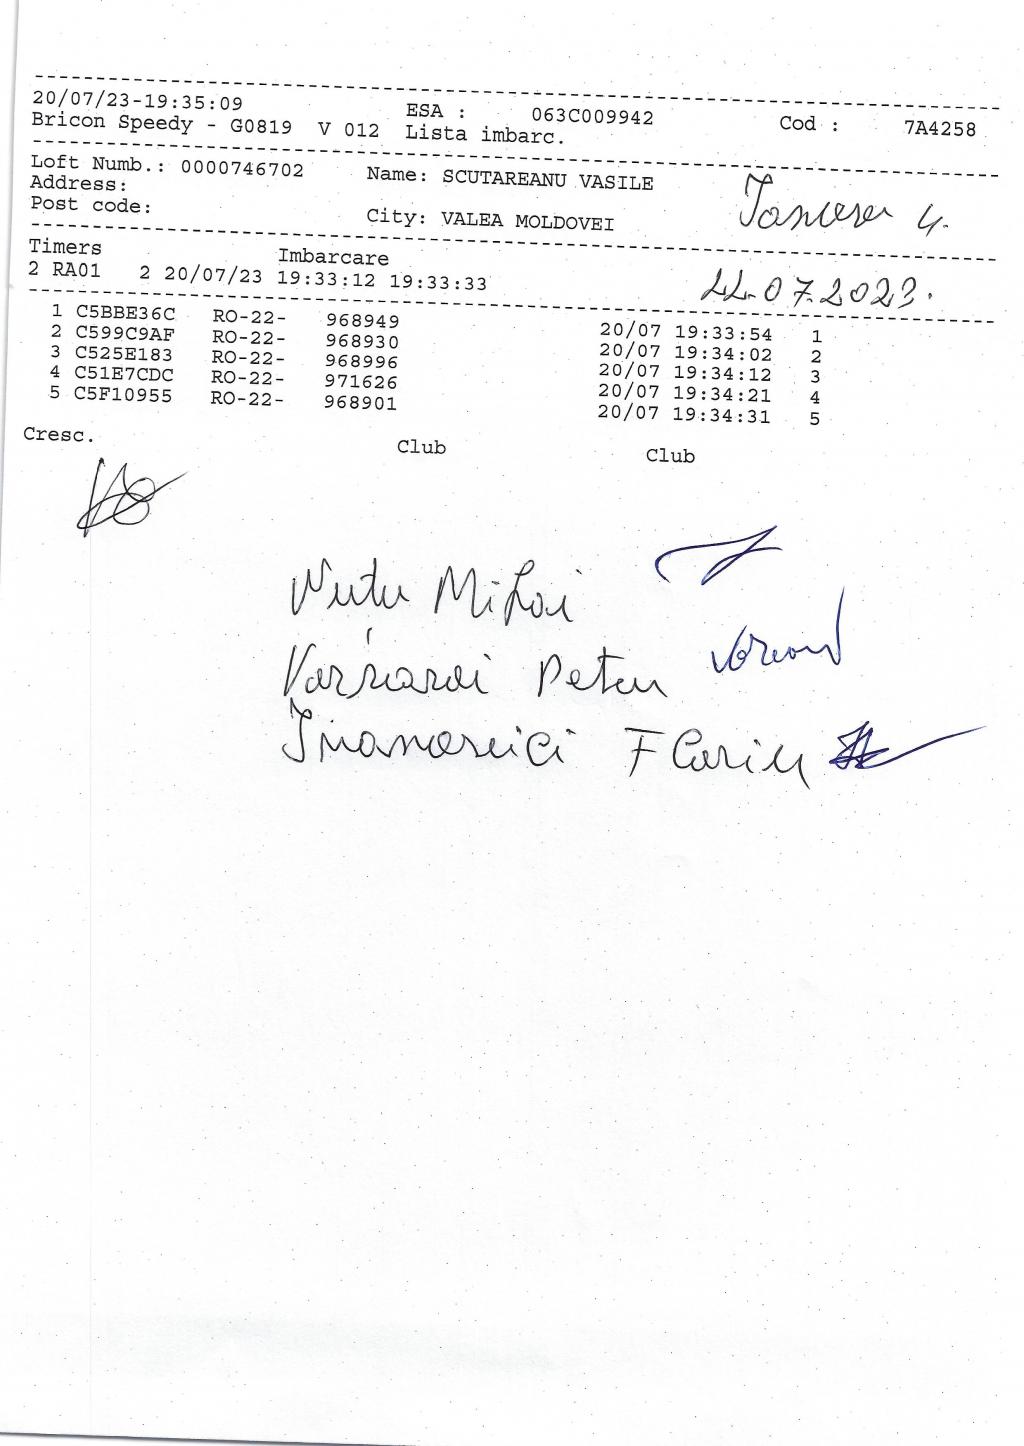 20/07/23-19:35:09 ESA : 063C009942 Cod : 7A4258
Bricon Speedy - G0819 V 012 Lista imbarc.
Loft Numb.: 0000746702 Name: SCUTAREANU VASILE
Address:
Post code: City: VALEA MOLDOVEI
4.
Timers Imbarcare
2 RA01 2 20/07/23 19:33:12 19:33:33
22.07.2023.
1 C5BBE36C RO-22- 968949 20/07 19:33:54 1
2 C599C9AF RO-22- 968930 20/07 19:34:02 2
3 C525E183 RO-22- 968996 20/07 19:34:12 3
4 C51E7CDC RO-22- 971626 20/07 19:34:21 4
5 C5F10955 RO-22- 968901 20/07 19:34:31 5
Cresc. Club Club
Nutu Mihai
Petru
Florin